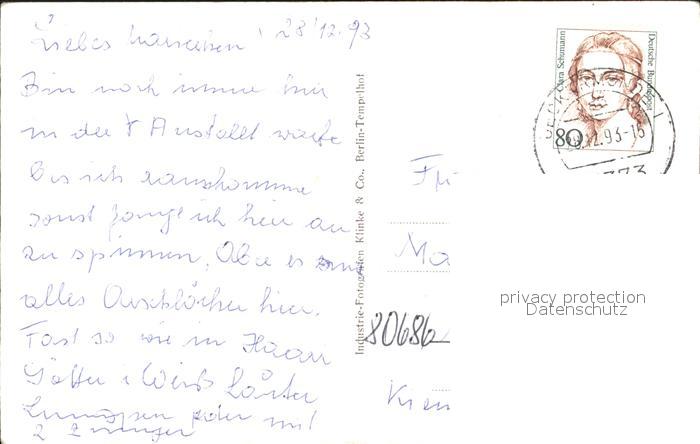 Liebes 28.12.93
Bin noch immer hier
in der Anstallt warte
bis ich rauskomme
sonst fange ich hier an
zu spinnen. Aber es sind
alles Arschlöcher hier.
Fast so wie in Haar
Götter i Weiß
2
Industrie-Fotografen Klinke & Co., Berlin-Tempelhof
Clara Schumann
Deutsche Bundespost
80
12.93-16
Ma
80686
privacy protection
Datenschutz